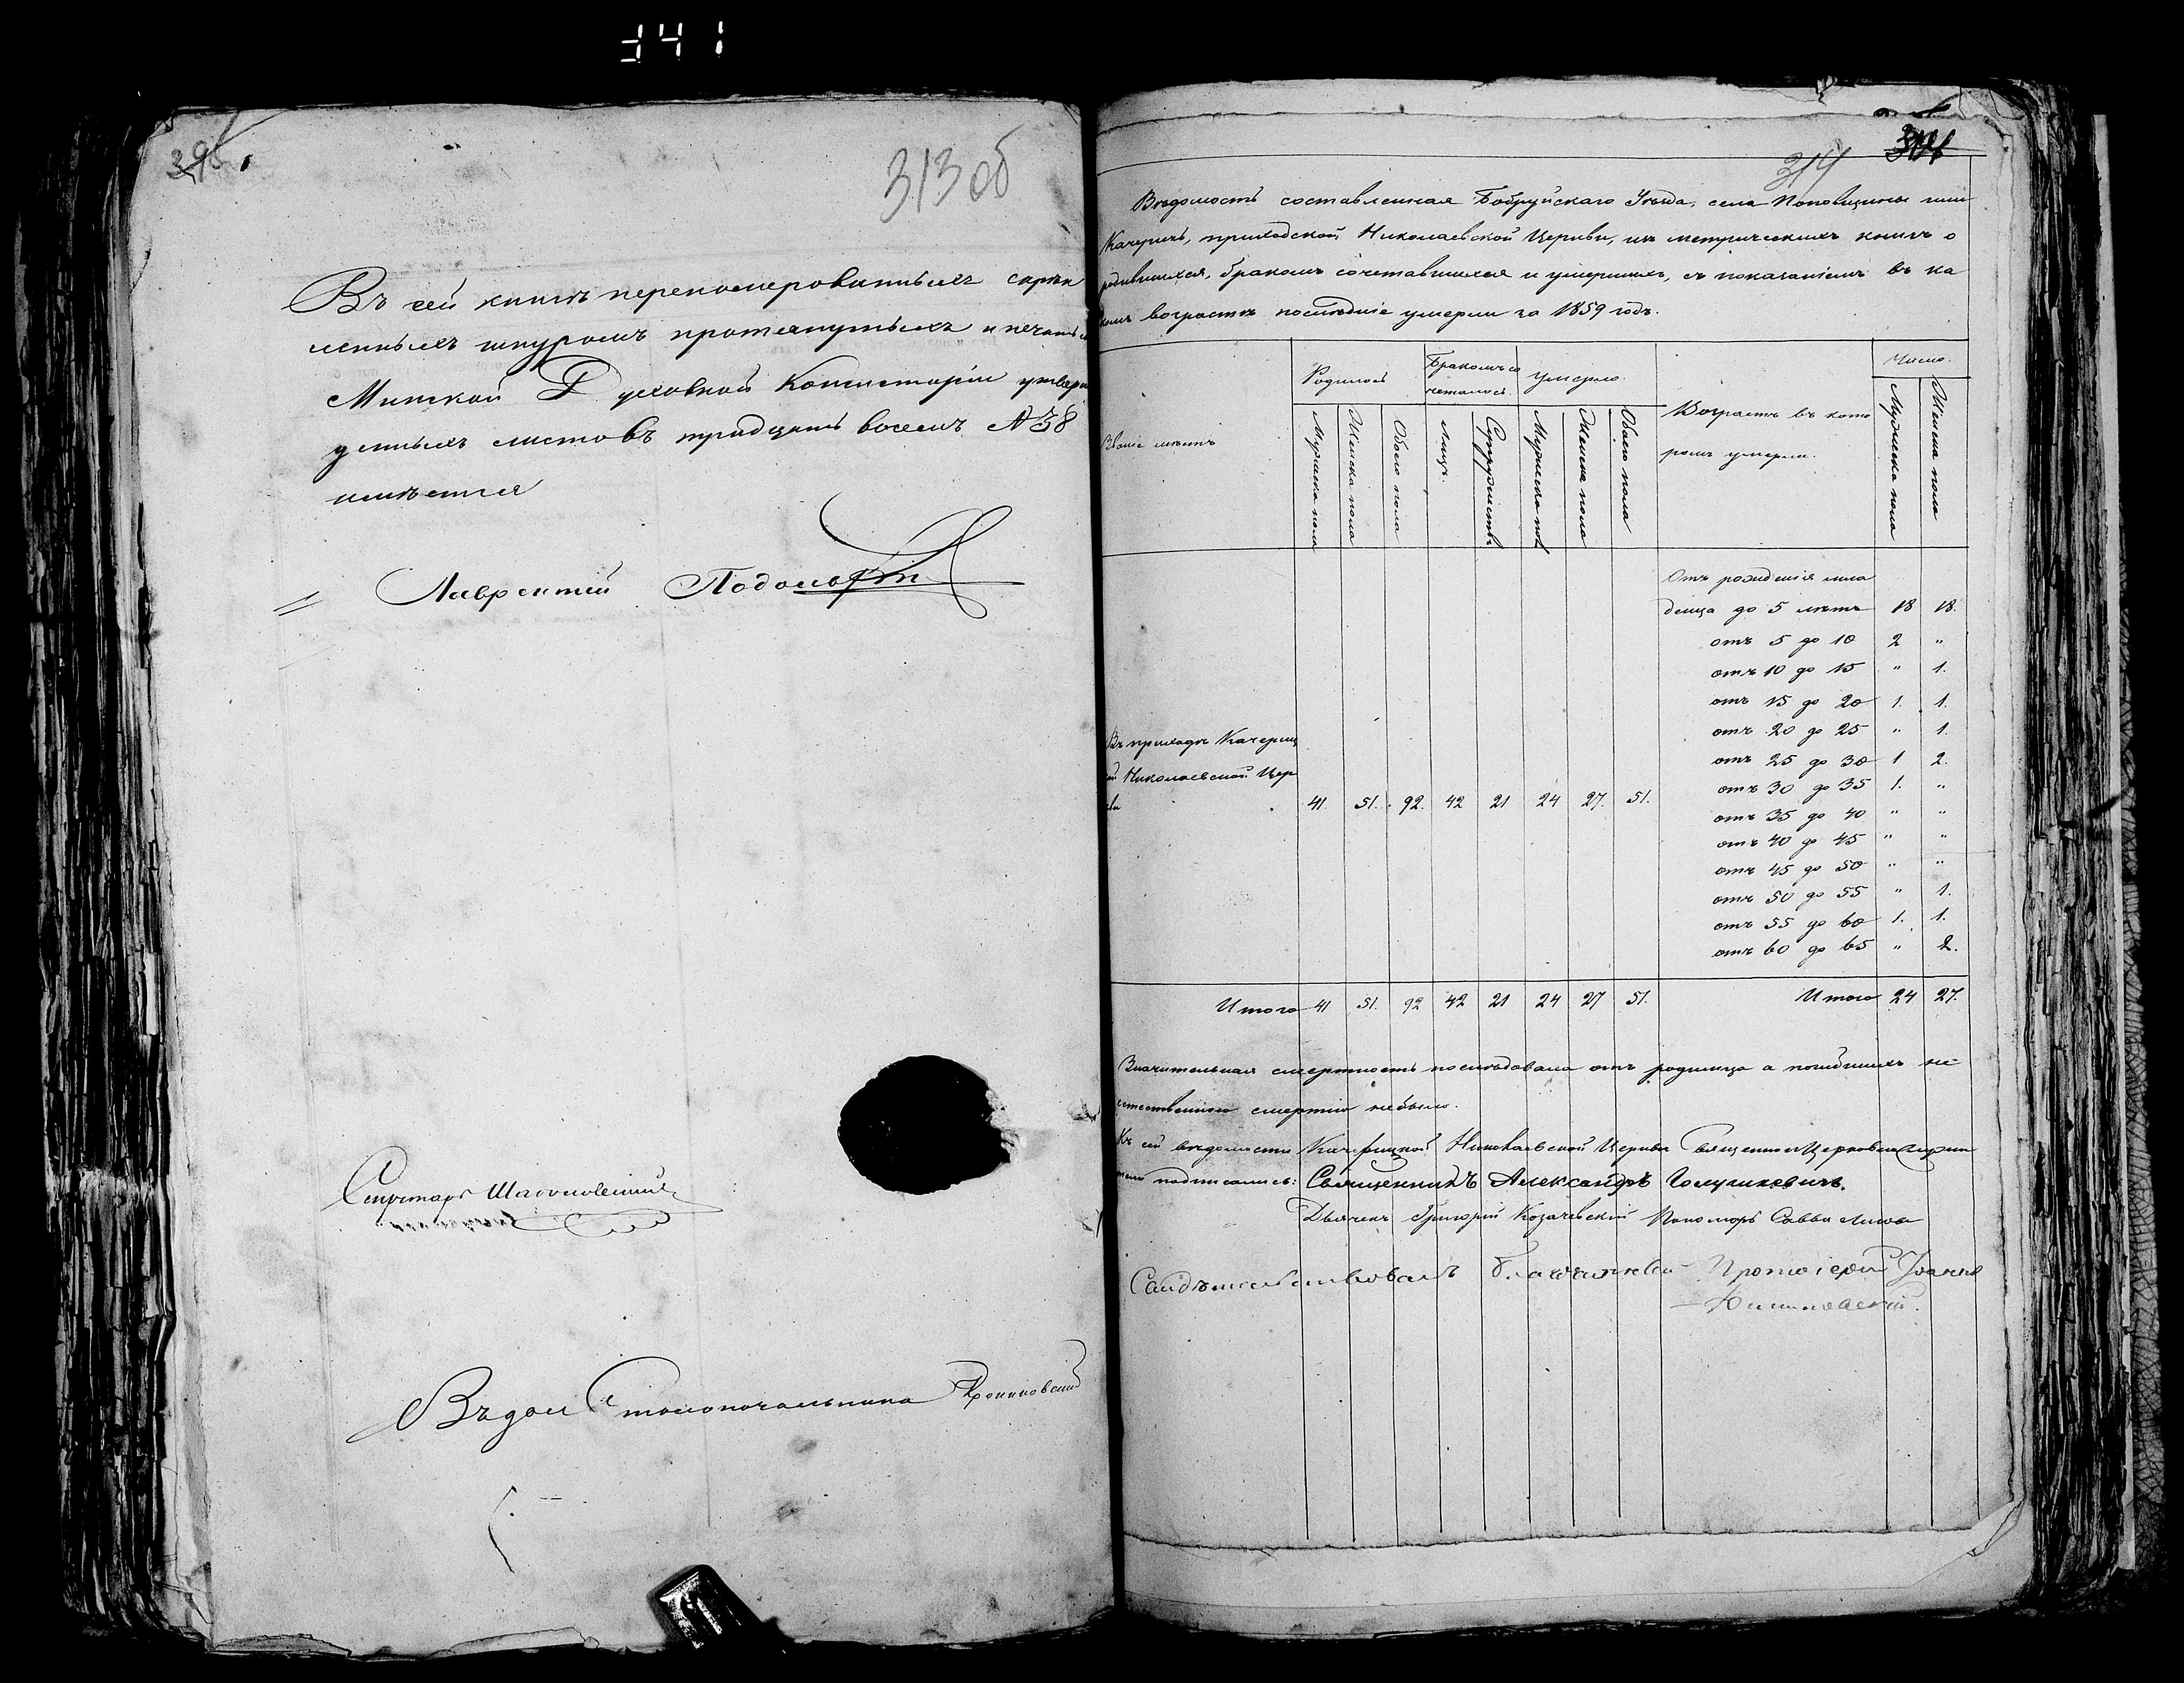 395
313 об
Въ сей книгѣ перенумерованныхъ скрѣп
ленныхъ шнуромъ протянутыхъ и печатью
Минской Духовной Консисторіи утверж
денныхъ листовъ тридцать восемь № 38
имѣется
Лаврентій
Секретарь
Въ дол. Столоначальника
314
Вѣдомость составленная Бобруйскаго Уѣзда, села Поповщины или
Качеричъ, приходской Николаевской Церкви, изъ метрическихъ книгъ о
родившихся, бракомъ сочетавшихся и умершихъ, съ показаніемъ въ ка
комъ возрастѣ послѣдніе умерли за 1859 годъ.
Званіе мѣстъ
Родилось
Бракомъ со
четалось.
Умерло.
Возрастъ въ кото
ромъ умерли.
Число.
Мужеска пола
Женска пола
Обоего пола
Лицъ.
Супружествъ
Мужеска пол
Женска пола
Обоего пола
Мужеска пола
Женска пола
Отъ рожденія мла
денца до 5 лѣтъ 18 18.
отъ 5 до 10 2 "
отъ 10 до 15 " 1.
отъ 15 до 20 1. 1.
отъ 20 до 25 " 1.
отъ 25 до 30 1 2.
отъ 30 до 35 1. "
отъ 35 до 40 " "
отъ 40 до 45 " "
отъ 45 до 50 " "
отъ 50 до 55 " 1.
отъ 55 до 60 1. 1.
отъ 60 до 65 " 2.
Въ приходѣ Качериц
ой Николаевской Цер
кви 41. 51. 92. 42 21 24 27. 51.
Итого 41 51. 92 42 21 24 27 51. Итого 24 27.
Значительная смертность послѣдовала отъ родимца а погибшихъ не
естественною смертію небыло.
Къ сей вѣдомости Качерицкой Николаевской Церкви Священноцерковнослужи
тели подписались: Священникъ Александръ Голушкевичъ.
Дьячекъ Григорій Козачевскій Пономарь Савва
Свидѣтельствовалъ Благочинный Протоіерей Іоаннъ